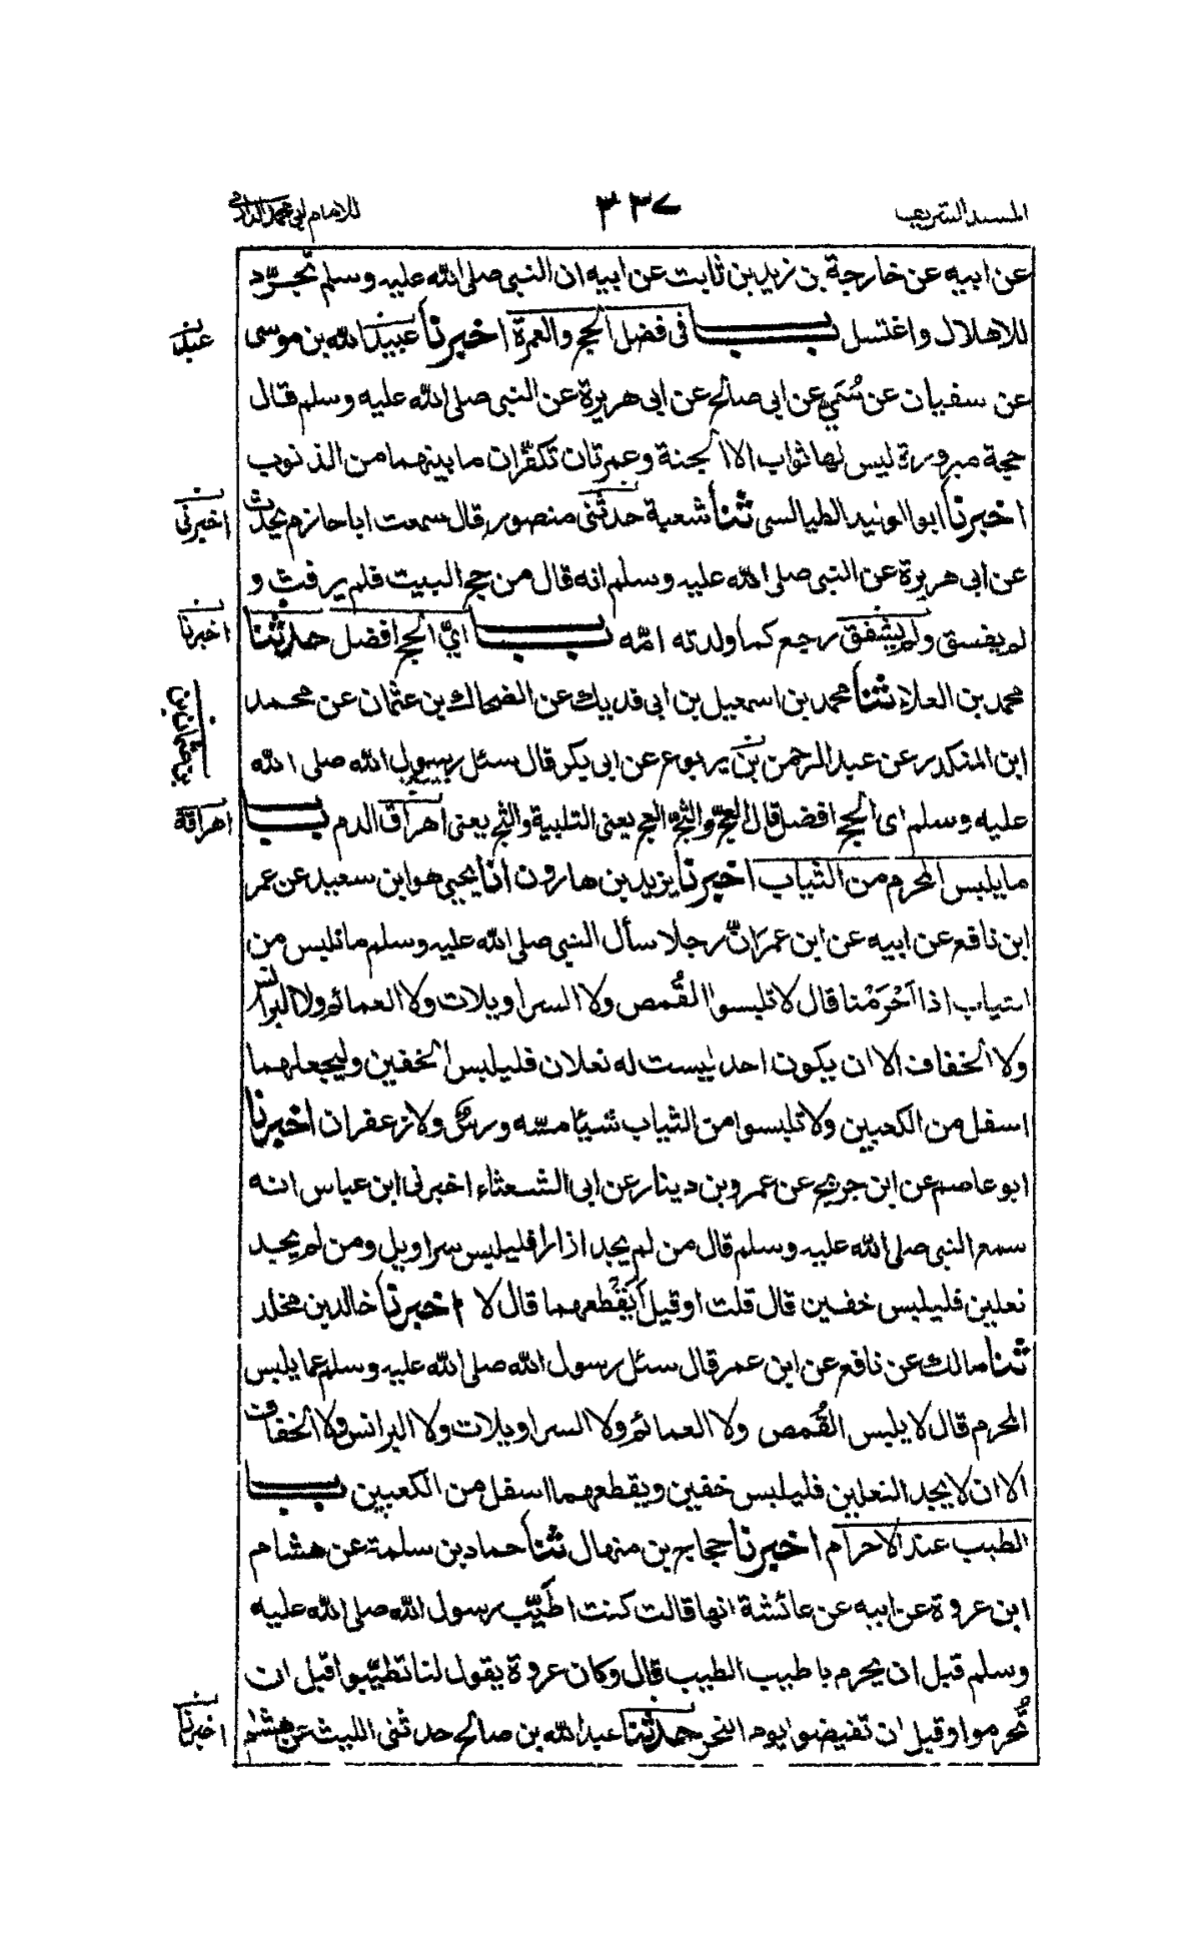 المسند الشريف
٣٣٧
للامام ابي محمد الدارمي
عن ابيه عن خارجة بن زيد بن ثابت عن ابيه ان النبي صلى الله عليه وسلم تجرّد
للاهلال واغتسل باب فى فضل الحج والعمرة اخبرنا عبيد الله بن موسى
عبد
عن سفيان عن سُمَي عن ابى صالح عن ابى هريرة عن النبى صلى الله عليه وسلم قال
حجة مبرورة ليس لها ثواب الا الجنة وعمرتان تكفّران ما بينهما من الذنوب
اخبرنا ابو الوليد الطيالسى ثنا شعبة حدثنى منصور قال سمعت ابا حازم يحدث
اخبرنى
عن ابى هريرة عن النبى صلى الله عليه وسلم انه قال من حج البيت فلم يرفث و
لم يفسق ولم يشفق رجع كما ولدته امّه باب ايّ الحج افضل حدثنا
اخبرنا
محمد بن العلاء ثنا محمد بن اسمعيل بن ابى فديك عن الضحاك بن عثمان عن محمد
بن عثمان بن
ابن المنكدر عن عبد الرحمن بن يربوع عن ابى بكر قال سئل رسول الله صلى الله
عليه وسلم اى الحج افضل قال العجّ والثجّ العج يعنى التلبية والثج يعنى اهراق الدم باب
اهراقة
ما يلبس المحرم من الثياب اخبرنا يزيد بن هارون انا يحيى هو ابن سعيد عن عمر
ابن نافع عن ابيه عن ابن عمر انّ رجلا سأل النبى صلى الله عليه وسلم ما نلبس من
الثياب اذا اَحْرَمْنا قال لا تلبسوا القُمص ولا السراويلات ولا العمائم ولا البرانس
ولا الخفاف الا ان يكون احد ليست له نعلان فليلبس الخفين وليجعلهما
اسفل من الكعبين ولا تلبسوا من الثياب شيئا مسّه ورسٌ ولا زعفران اخبرنا
ابو عاصم عن ابن جريج عن عمرو بن دينار عن ابى الشعثاء اخبرنى ابن عباس انه
سمع النبى صلى الله عليه وسلم قال من لم يجد ازارا فليلبس سراويل ومن لم يجد
نعلين فليلبس خفين قال قلت او قيل اَيَقْطعهما قال لا اخبرنا خالد بن مخلد
ثنا مالك عن نافع عن ابن عمر قال سئل رسول الله صلى الله عليه وسلم عما يلبس
المحرم قال لا يلبس القُمص ولا العمائم ولا السراويلات ولا البرانس ولا الخفاف
الا ان لا يجد النعلين فليلبس خفين ويقطعهما اسفل من الكعبين باب
الطيب عند الاحرام اخبرنا حجاج بن منهال ثنا حماد بن سلمة عن هشام
ابن عروة عن ابيه عن عائشة انها قالت كنت اطَيّب رسول الله صلى الله عليه
وسلم قبل ان يحرم باطيب الطيب قال وكان عروة يقول لنا تطيّبوا قبل ان
تُحرموا وقبل ان تفيضوا يوم النحر حدثنا عبد الله بن صالح حدثنى الليث عن هشام
اخبرنا